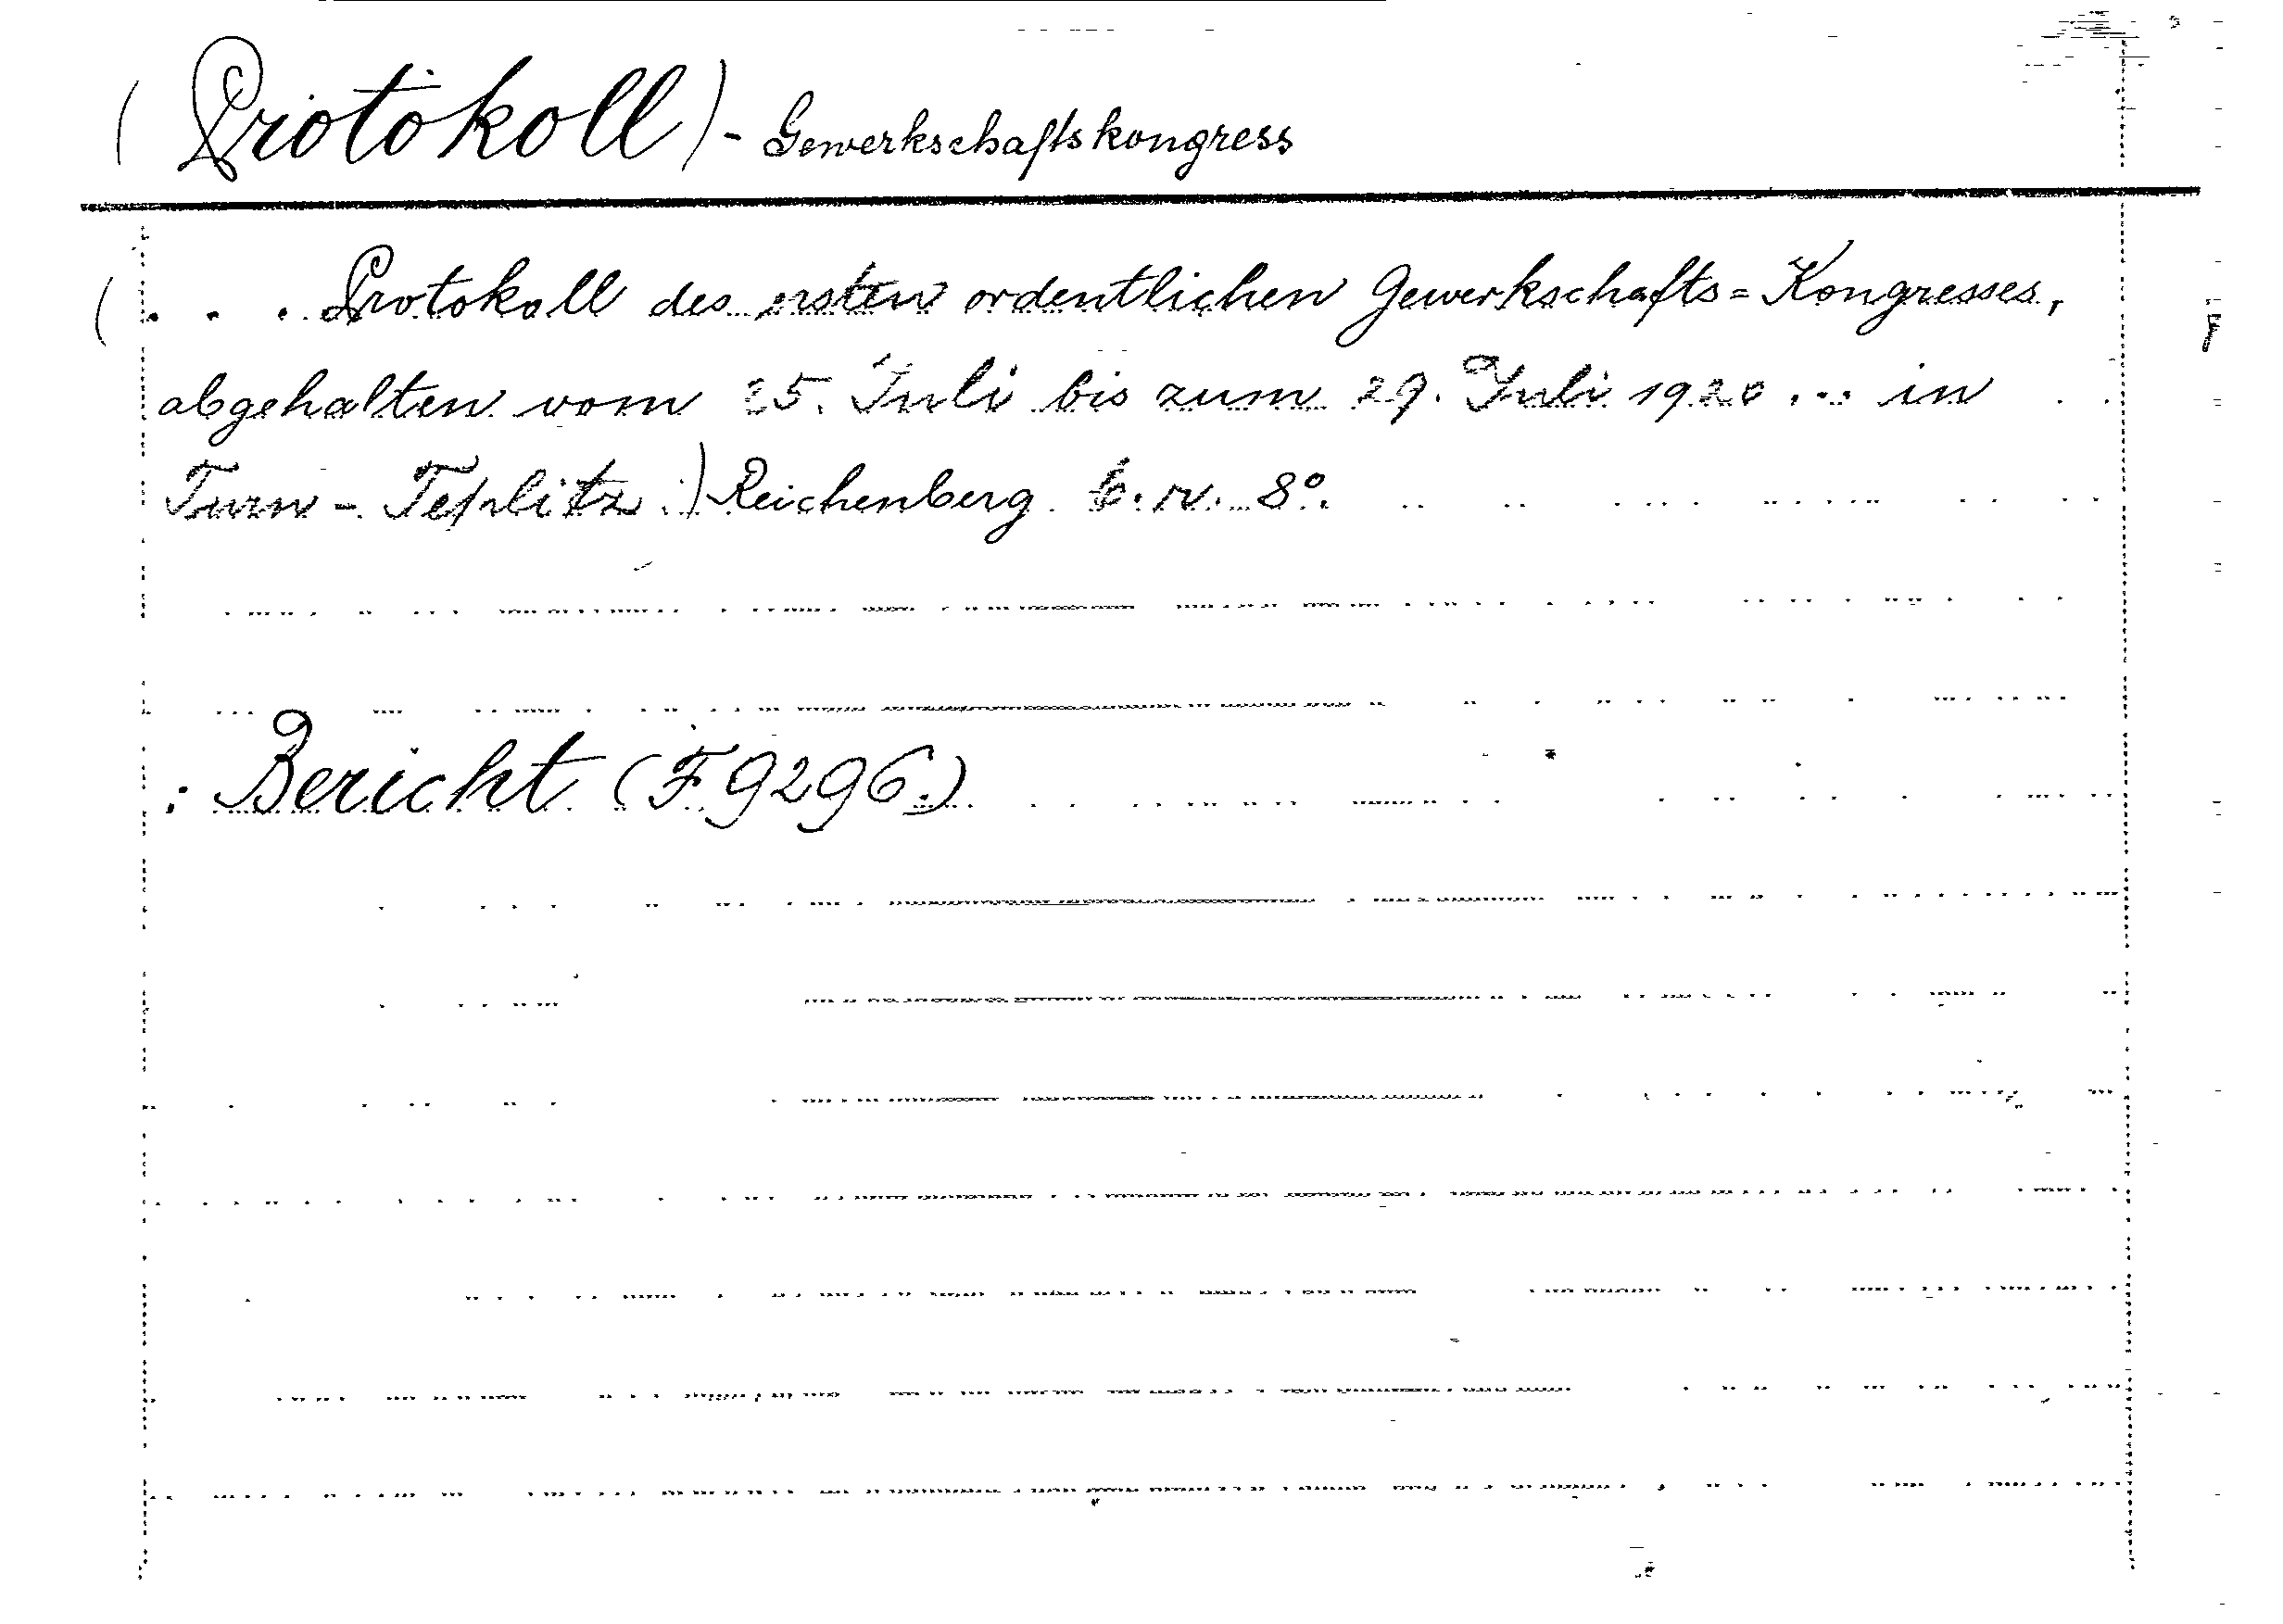 (Protokoll) - Gewerkschaftskongress
(. . . Protokoll des ersten ordentlichen Gewerkschafts=Kongresses,
abgehalten vom 25. Juli bis zum 29. Juli 1920 ... in
Turn - Teplitz :) Reichenberg 8°.
: Bericht (F 9296.)